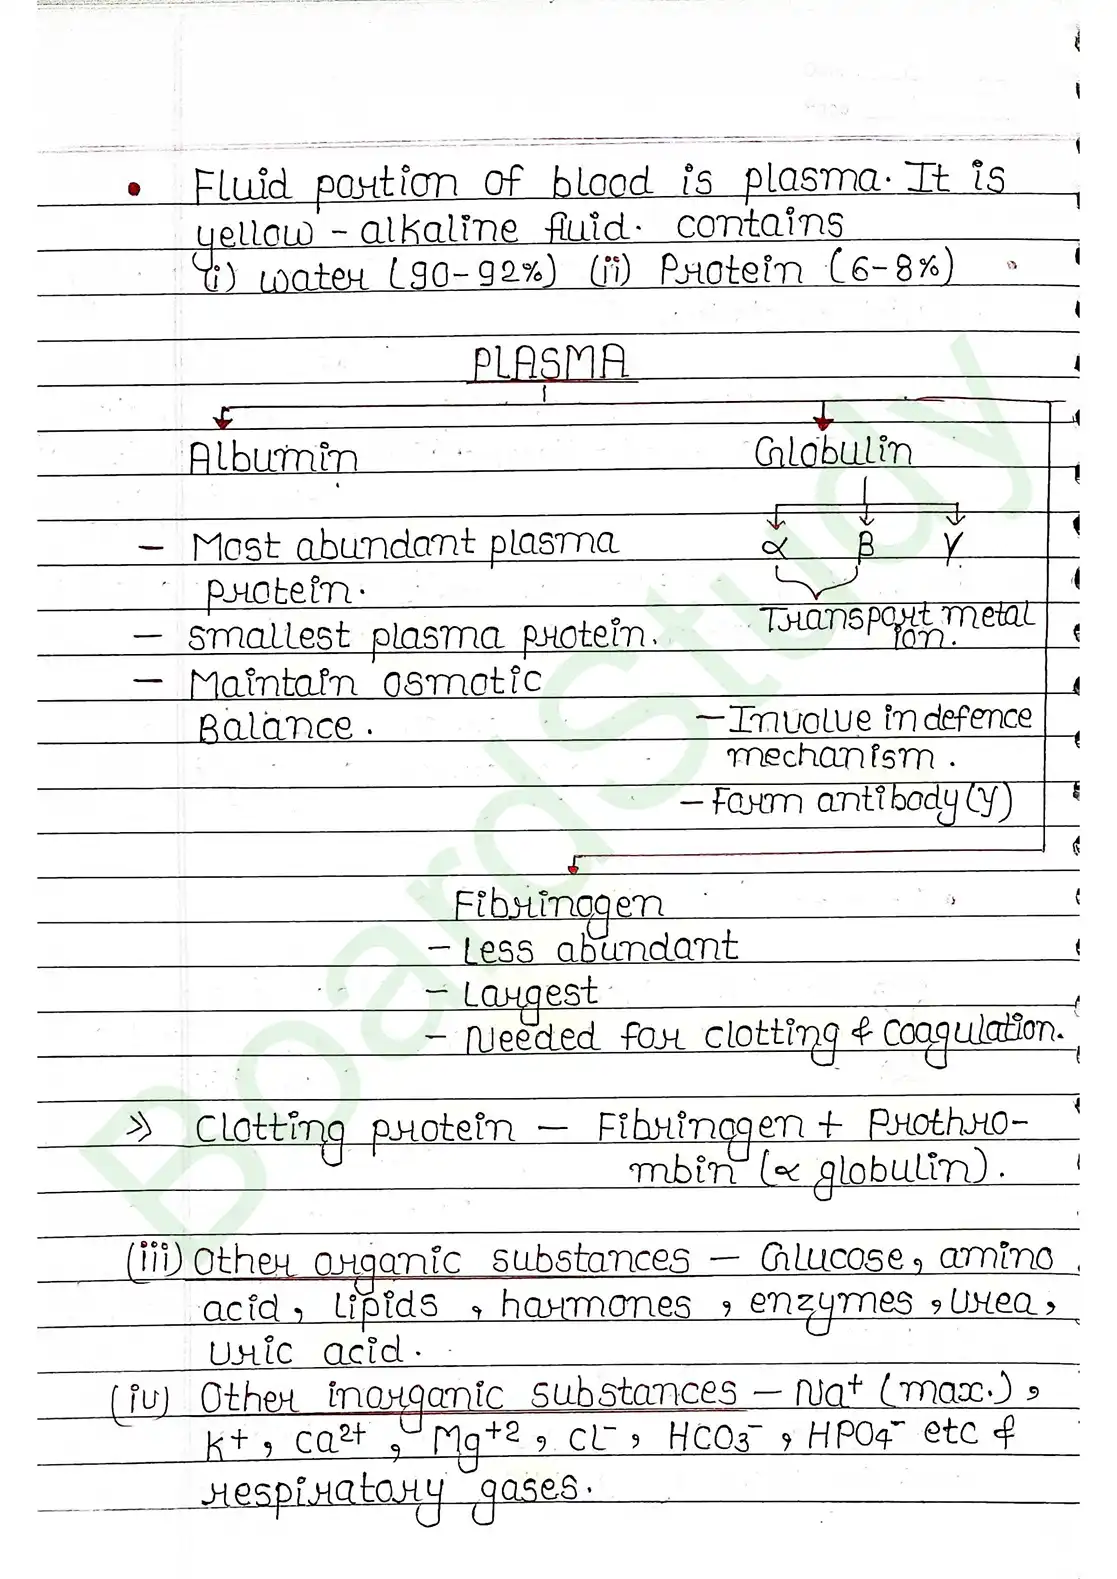 • Fluid portion of blood is plasma. It is
yellow - alkaline fluid. contains
(i) water (90-92%) (ii) Protein (6-8%)
PLASMA
Albumin
Globulin
α β γ
Transport metal
ion.
- Most abundant plasma
protein.
- smallest plasma protein.
- Maintain osmotic
Balance.
- Involve in defence
mechanism.
- Form antibody (γ)
Fibrinogen
- Less abundant
- Largest
- Needed for clotting & Coagulation.
>> Clotting protein - Fibrinogen + Prothro-
mbin (α globulin).
(iii) Other organic substances - Glucose, amino
acid, lipids, hormones, enzymes, urea,
uric acid.
(iv) Other inorganic substances - Na+ (max.),
K+, Ca2+, Mg+2, Cl-, HCO3-, HPO4- etc &
respiratory gases.
BoardStudy